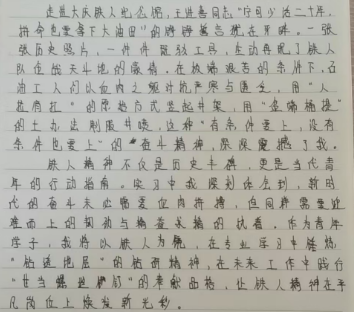 走进大庆铁人纪念馆，王进喜同志"宁可少活二十年，
拼命也要拿下大油田"的铮铮誓言犹在耳畔。一张
张历史照片，一件件斑驳工具，生动再现了铁人
队伍战天斗地的豪情。在极端艰苦的条件下，石
油工人们以血肉之躯对抗严寒与匮乏，用"人
拉肩扛"的原始方式竖起井架，用"盆端桶提"
的土办法制服井喷，这种"有条件要上，没有
条件也要上"的奋斗精神，深深震撼了我。
铁人精神不仅是历史丰碑，更是当代青
年的行动指南。实习中我深刻体会到，新时
代的奋斗未必需要血肉拼搏，但同样需要迎
难而上的勇气与精益求精的执着。作为青年
学子，我将以铁人为镜，在专业学习中锤炼
"钻透地层"的钻研精神，在未来工作中践行
"甘当螺丝钉"的奉献品格，让铁人精神在平
凡岗位上焕发新光彩。